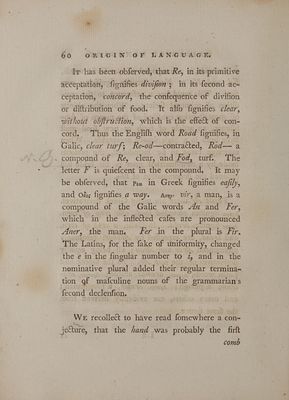 60 ORIGIN OF LANGUAGE.
IT has been obſerved, that Re, in its primitive
acceptation, ſignifies diviſion; in its ſecond ac-
ceptation, concord, the conſequence of diviſion
or diſtribution of food. It alſo ſignifies clear,
without obſtruction, which is the effect of con-
cord. Thus the Engliſh word Road ſignifies, in
Galic, clear turf; Re-od—contracted, Rod— a
compound of Re, clear, and Fod, turf. The
letter F is quieſcent in the compound. It may
be obſerved, that Ρεα in Greek ſignifies eaſily,
and Οδος ſignifies a way. vir, a man, is a
compound of the Galic words An and Fer,
which in the inflected caſes are pronounced
Aner, the man. Fer in the plural is Fir.
The Latins, for the ſake of uniformity, changed
the e in the ſingular number to i, and in the
nominative plural added their regular termina-
tion of maſculine nouns of the grammarian's
ſecond declenſion.
WE recollect to have read ſomewhere a con-
jecture, that the hand was probably the firſt
comb